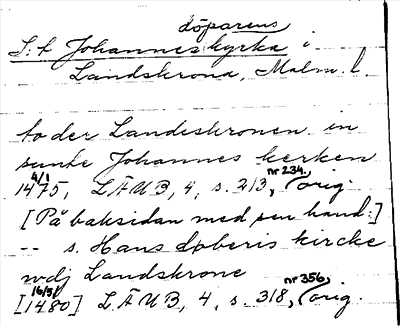 döparens
S:t Johannes kyrka i
Landskrona, Malm. l.
to der Landeskronen in
sunte Johannes kerken
4/1 nr 234.
1475, LÄUB, 4, s. 213, orig.
[På baksidan med sen hand:]
-- s. Hans döberis kircke
wdj Landskrone
16/5 nr 356,
[1480] LÄUB, 4, s. 318, orig.